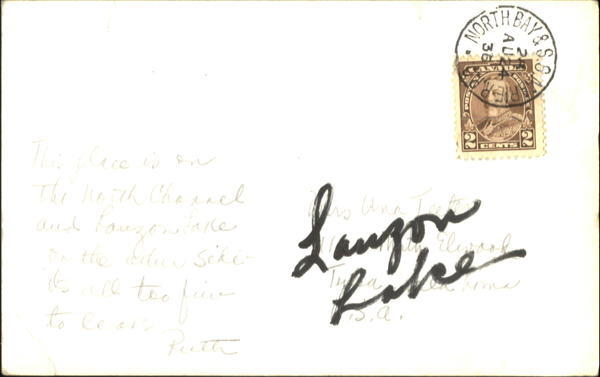 NORTH BAY & S.S.M.
24
AU 24
36
2 CENTS 2
This place is on
the North Channel
and Lauzon Lake
on the other side-
it's all too fine
to leave
Ruth
Lauzon
Lake
Mrs Una
Elwood
U.S.A.